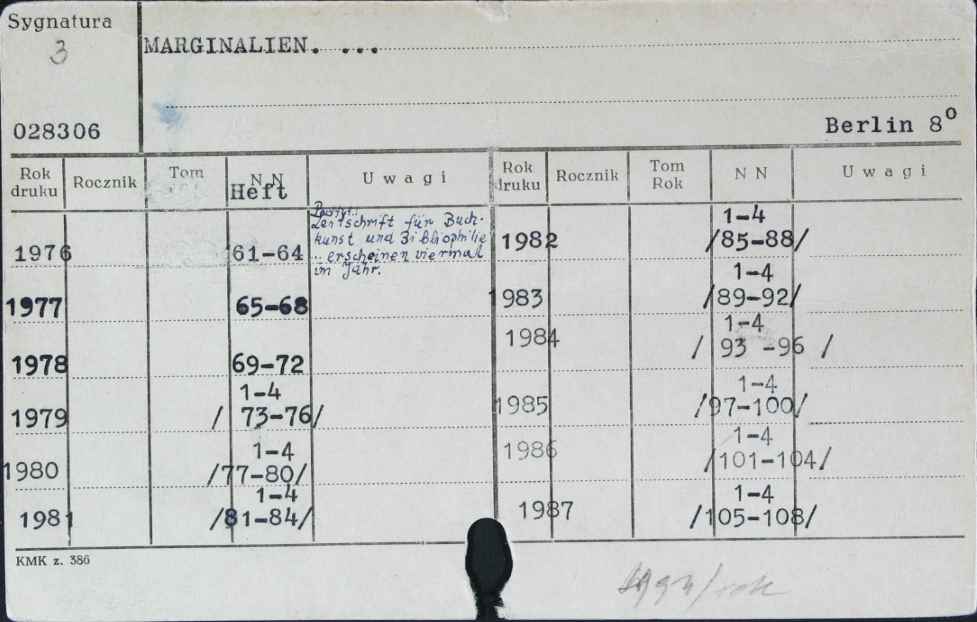 Sygnatura
3
MARGINALIEN. ...
028306
Berlin 8⁰
Rok druku Rocznik Tom NN Uwagi
Heft
1976 61-64
Zeitschrift für Buch-
kunst und Bibliophilie
.. erscheinen viermal
im Jahr.
1977 65-68
1978 69-72
1979 1-4
/ 73-76/
1980 1-4
/77-80/
1981 1-4
/81-84/
Rok druku Rocznik Tom Rok NN Uwagi
1982 1-4
/85-88/
1983 1-4
/89-92/
1984 1-4
/ 93 -96 /
1985 1-4
/97-100/
1986 1-4
/101-104/
1987 1-4
/105-108/
KMK z. 386